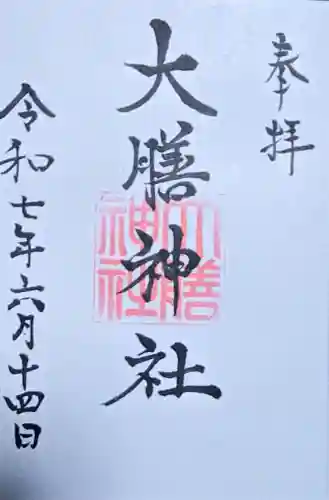 奉拝
大膳神社
大膳神社
令和七年六月十四日